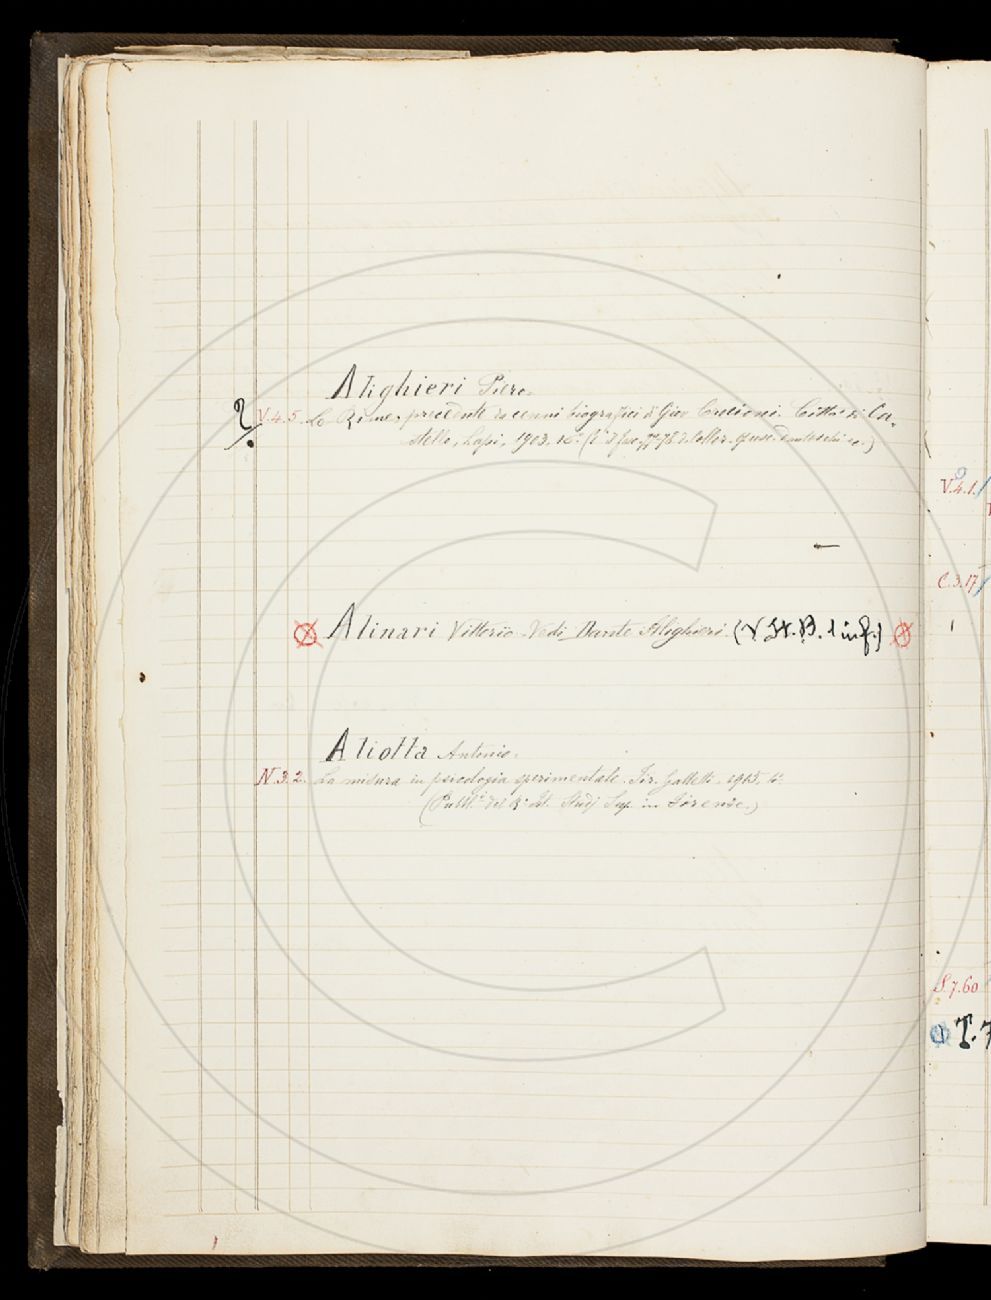 Alighieri Piero.
? V.4.5. Le Rime, precedute da cenni biografici di Giov. Crocioni. Città di Ca-
stello, Lapi, 1903. 16.° (77-78 d. Collez. opusc. Danteschi
V.4.1.
C.3.17
Alinari Vittorio. Vedi Dante Alighieri (V. St. B. 1 inf.)
Aliotta Antonio.
N.3.2. La misura in psicologia sperimentale. Fir. Galletti. 1905. 4.°
(Pubbl. del R. Ist. Studj Sup. in Firenze.)
S.7.60
T.7